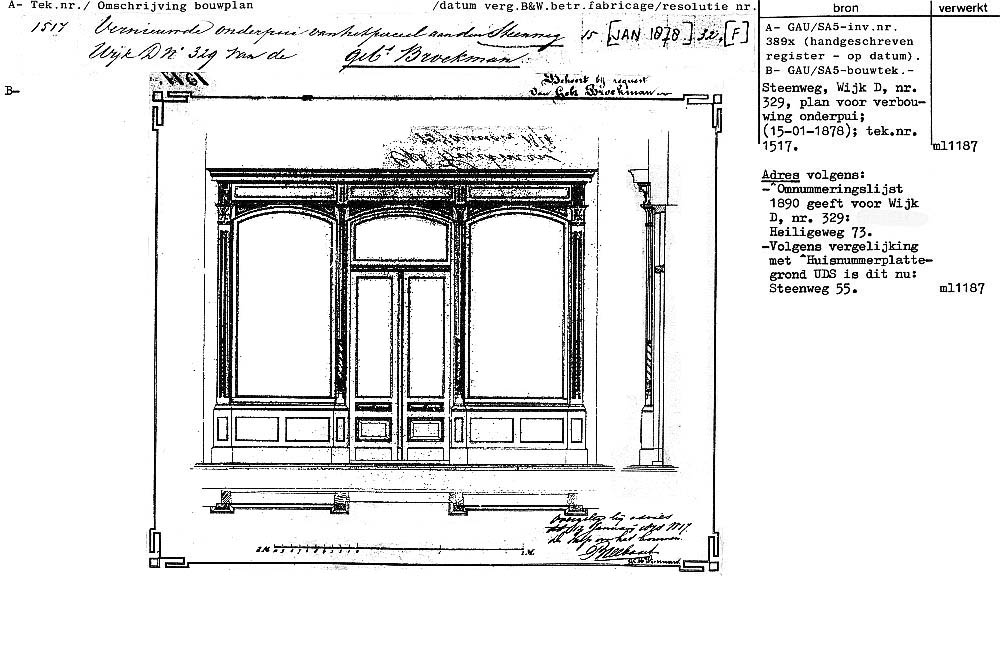 A- Tek.nr./ Omschrijving bouwplan /datum verg.B&W.betr.fabricage/resolutie nr.
bron verwerkt
1517 Vernieuwde onderpui van het perceel aan den Steenweg 15 [JAN 1878] 32, [F]
Wijk D No 329 van de Gebs. Broekman.
B-
A- GAU/SA5-inv.nr.
389x (handgeschreven
register - op datum).
B- GAU/SA5-bouwtek.-
Steenweg, Wijk D, nr.
329, plan voor verbou-
wing onderpui;
(15-01-1878); tek.nr.
1517. ml1187
Adres volgens:
-"Omnummeringslijst
1890 geeft voor Wijk
D, nr. 329:
Heiligeweg 73.
-Volgens vergelijking
met "Huisnummerplatte-
grond UDS is dit nu:
Steenweg 55. ml1187
Behoort bij request
van Gebs Broekman
Januari